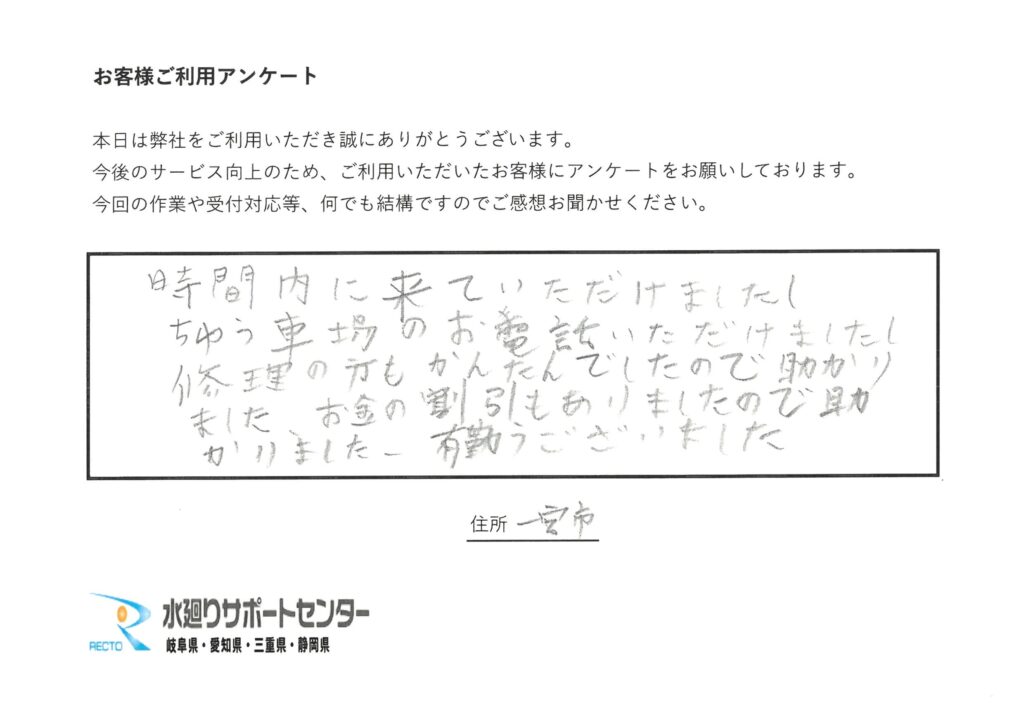 お客様ご利用アンケート
本日は弊社をご利用いただき誠にありがとうございます。
今後のサービス向上のため、ご利用いただいたお客様にアンケートをお願いしております。
今回の作業や受付対応等、何でも結構ですのでご感想お聞かせください。
時間内に来ていただけましたし
ちゅう車場のお電話いただけましたし
修理の方もかんたんでしたので助かり
ました、お金の割引もありましたので助
かりました。有勤うございました
住所 一宮市
RECTO
水廻りサポートセンター
岐阜県・愛知県・三重県・静岡県